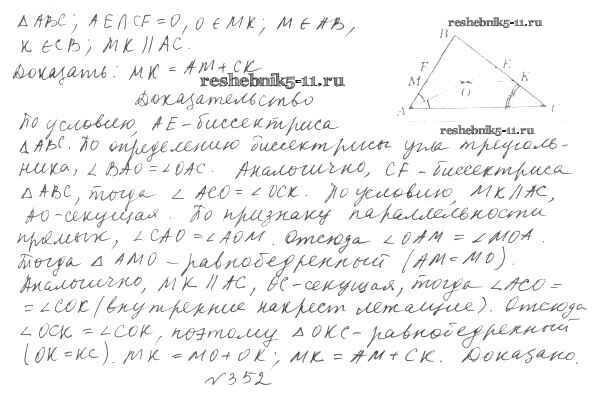 △ ABC; AE∩CF=O, O∈MK; M∈AB,
K∈CB; MK∥AC.
Доказать: MK = AM+CK
reshebnik5-11.ru
Доказательство
reshebnik5-11.ru
B
F
E
M
K
O
A
C
reshebnik5-11.ru
По условию, AE-биссектриса
△ABC. По определению биссектрисы угла треуголь-
ника, ∠BAO=∠OAC. Аналогично, CF-биссектриса
△ABC, тогда ∠ACO=∠OCK. По условию, MK∥AC,
AO-секущая. По признаку параллельности
прямых, ∠CAO=∠AOM. Отсюда ∠OAM=∠MOA.
Тогда △AMO-равнобедренный (AM=MO).
Аналогично, MK∥AC, OC-секущая, тогда ∠ACO=
=∠COK (внутренние накрест лежащие). Отсюда
∠OCK=∠COK, поэтому △OKC-равнобедренный
(OK=KC). MK=MO+OK; MK=AM+CK. Доказано.
№352